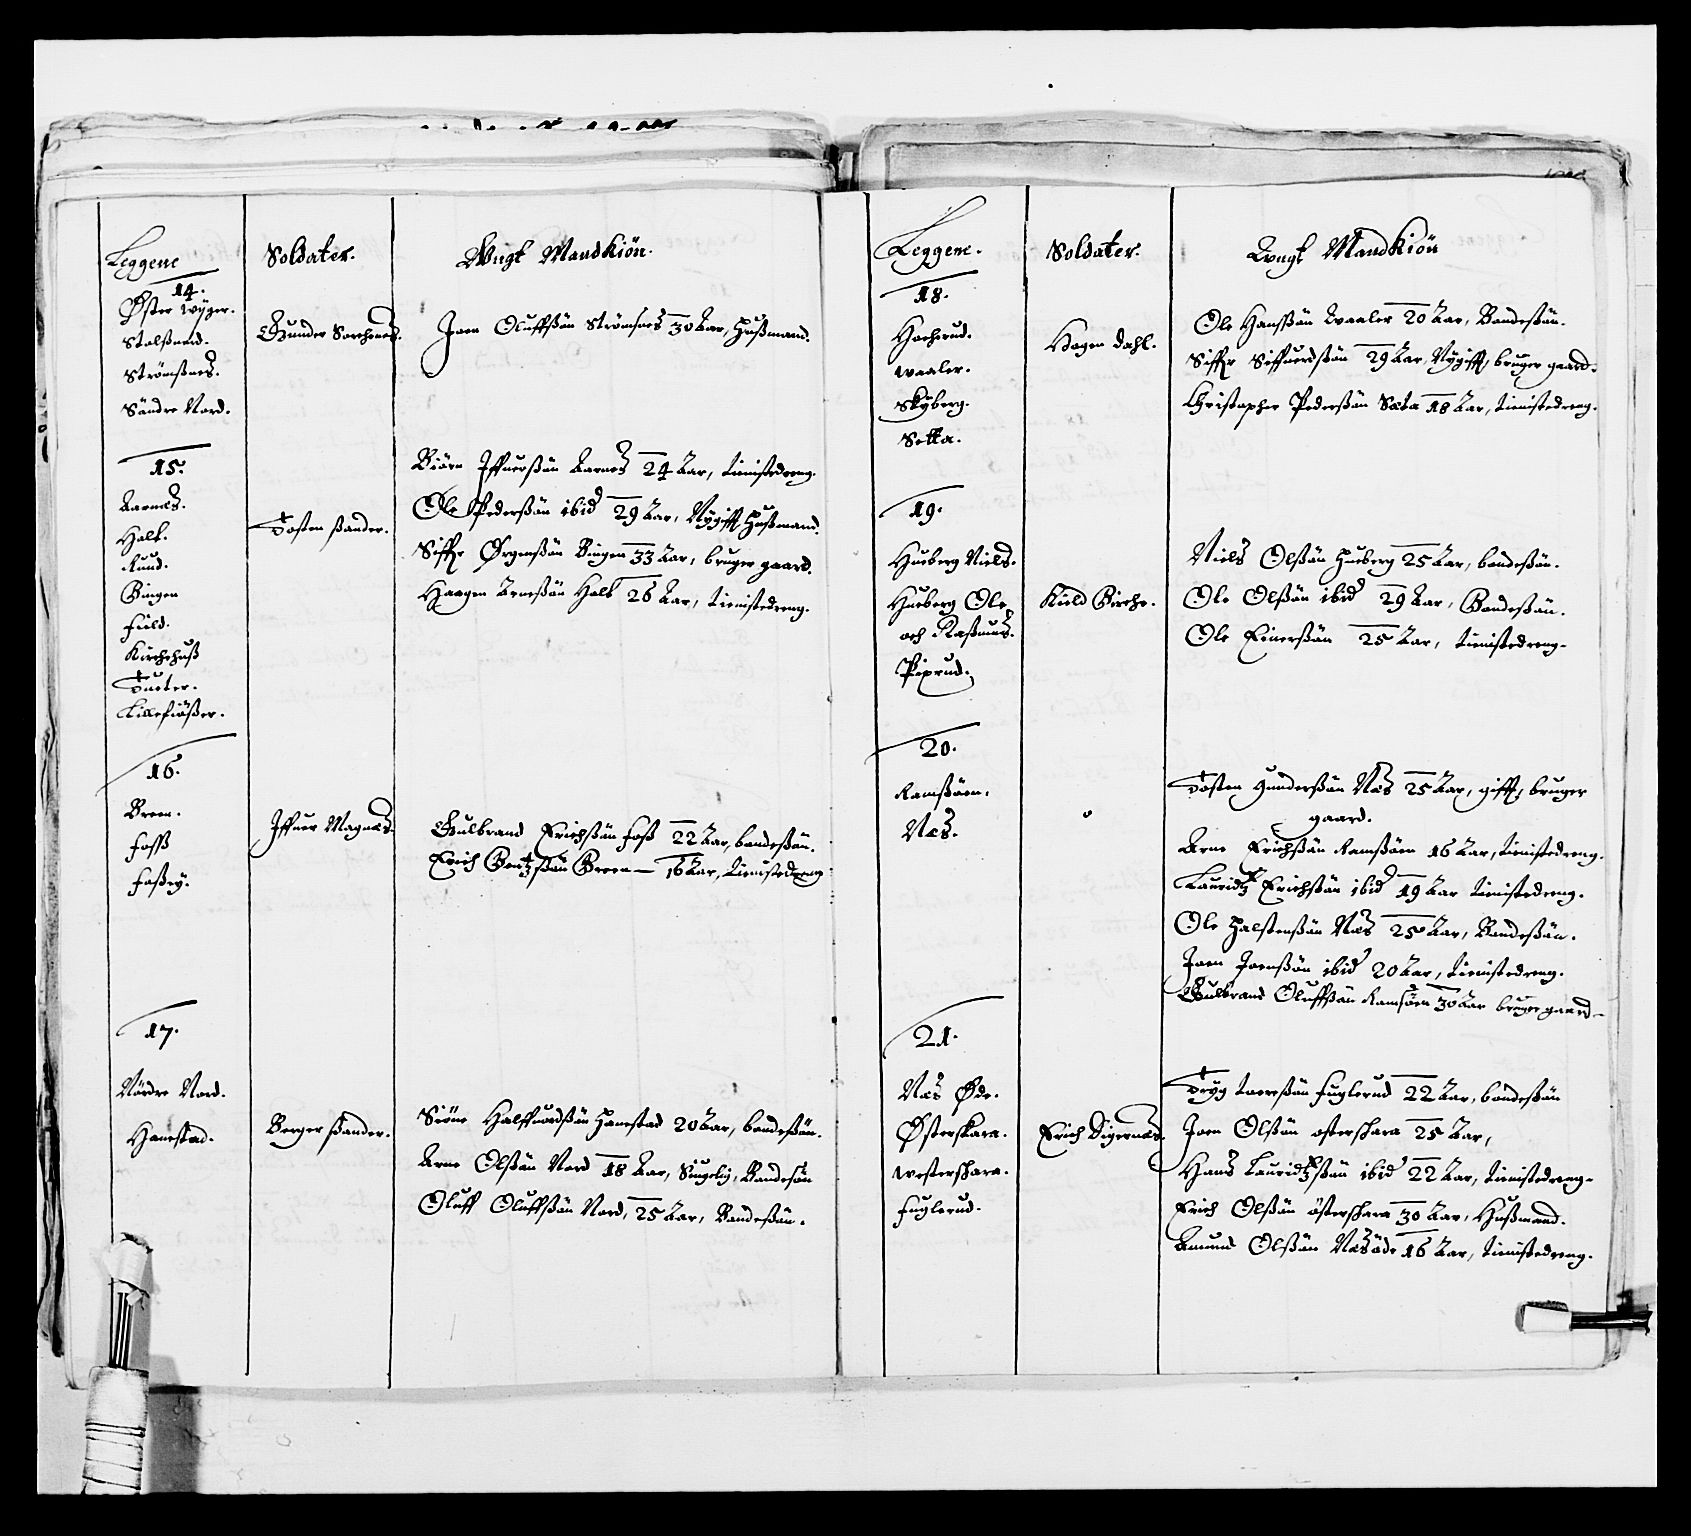 Leggene
Soldater.
Wngt Mandkiön.
14.
Öster Wÿger.
Stalsnard.
Strömsnes.
Söndre Nord.
Gunder
Joen Oluffsön Strömsnes 30 Aar, Husmand.
15.
Aarnæs.
Half.
Rund.
Bingen
Field.
Kirchehus
Tueter.
Lillefiösser.
Tosten Sander.
Biörn Iffuersön Aarnes 24 Aar, tienistedreng.
Ole Pedersön ibid 29 Aar, Nÿgifft Husmand.
Siffr Örgensön Bingen 33 Aar, bruger gaard.
Haagen Arnesön Half 26 Aar, tienistedreng.
16.
Breen.
Foss
Fosseÿ.
Iffuer Magnæs.
Gulbrand Erichsön Foss 22 Aar, bondesön.
Erich Bentzsön Breen 16 Aar, tienistedreng
17.
Nördre Nord.
Hanestad.
Berger Sander.
Halffuordsön Hanestad 20 Aar, bondesön.
Arne Olssön Nord 18 Aar, Bondesön
Oluff Oluffsön Nord, 25 Aar, Bondesön.
Leggene.
Soldater.
Wngt Mandkiön
18.
Hocherud.
Waaler.
Skÿberg.
Setta.
Hagen Dahl.
Ole Hanssön Waaler 20 Aar, Bondesön.
Siffr Siffuerdsön 29 Aar, Nÿgifft, bruger gaard.
Christopher Pedersön Sæta 18 Aar, tienistedreng.
19.
Hueberg Niels.
Hueberg Ole,
och Rasmus.
Piprud.
Kield Birche.
Niels Olssön Hueberg 25 Aar, bondesön.
Ole Olssön ibid 29 Aar, Bondesön.
Ole Einersön 25 Aar, tienistedreng.
20.
Ramsöen.
Næs.
Tosten Gundersön Næs 25 Aar, gifft, bruger
gaard.
Arne Erichsön Ramsöen 16 Aar, tienistedreng.
Lauridtz Erichsön ibid 19 Aar tienistedreng.
Ole Halstensön Næs 25 Aar, Bondesön.
Joen Joensön ibid 20 Aar, tienistedreng.
Gulbrand Oluffsön Ramsöen 30 Aar bruger gaard
21.
Næs Öde.
Österskara.
Westerskara.
Fuglerud.
Erich Digernæs.
Trÿg Toeresön Fuglerud 22 Aar, bondesön
Joen Olssön osterskara 25 Aar,
Hans Lauridtzsön ibid 22 Aar, tienistedreng.
Erich Olssön österskara 30 Aar, Husmand.
Amund Olssön Næsöde 16 Aar, tienistedreng.